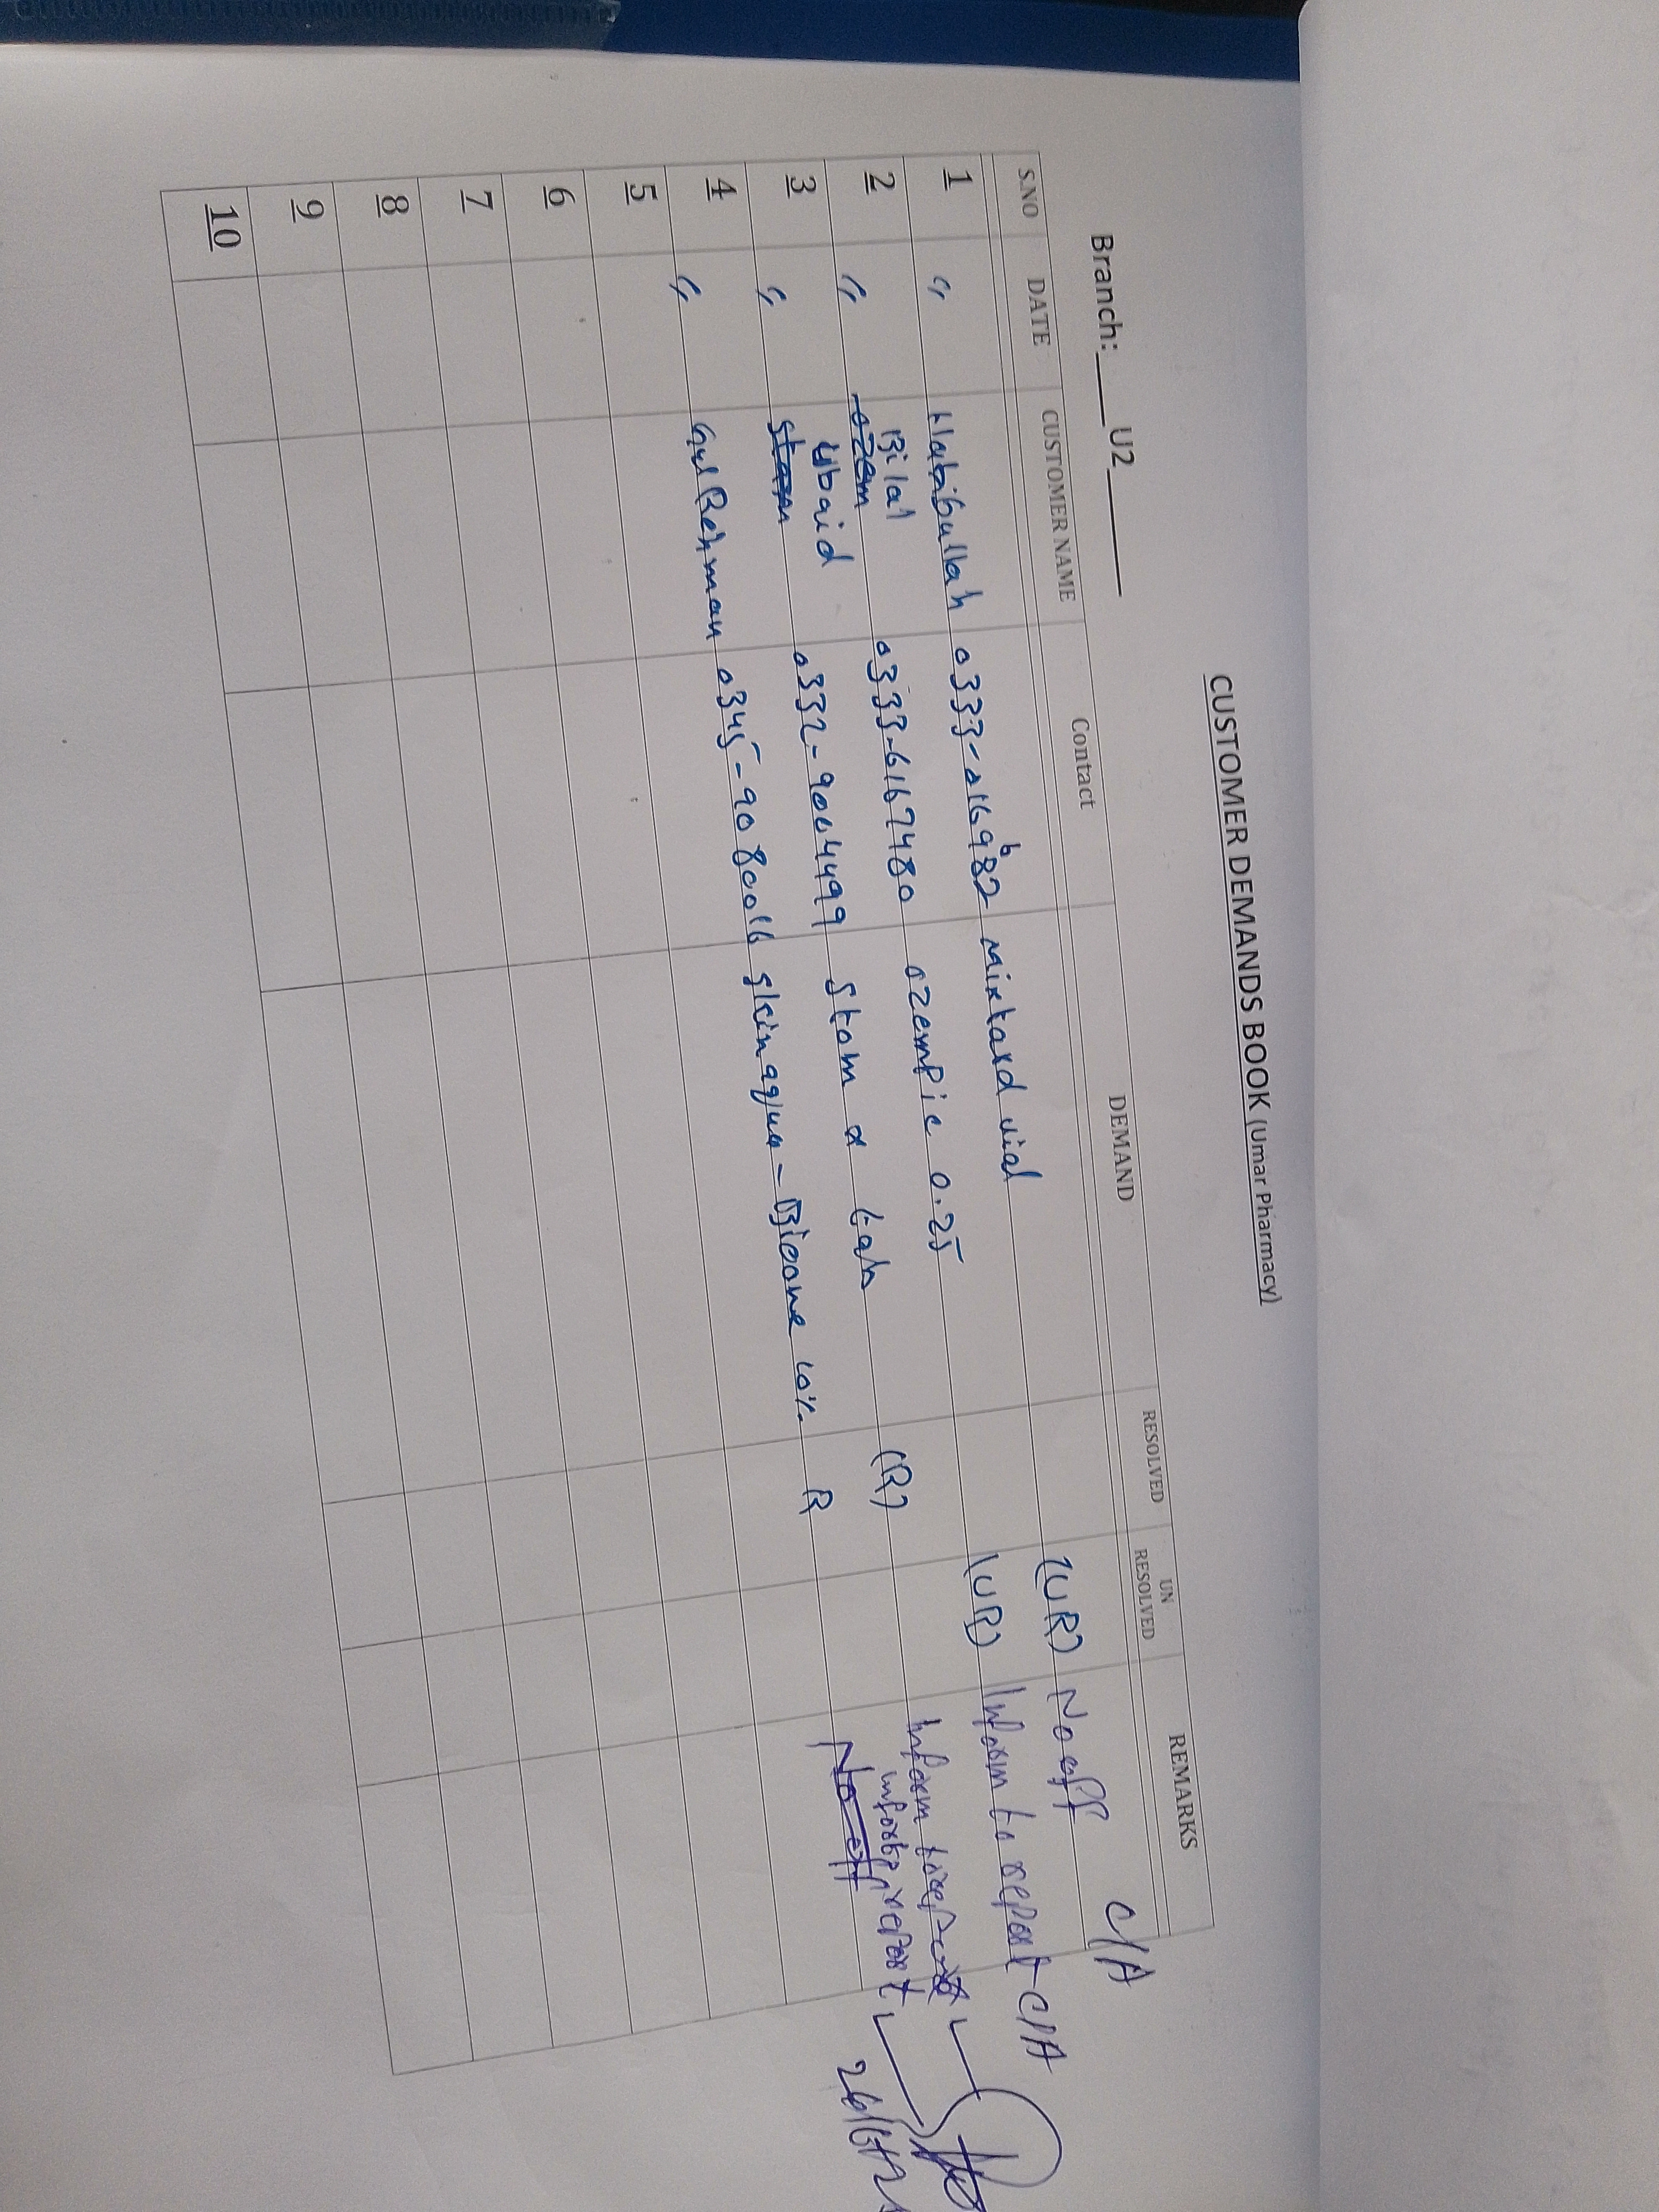 CUSTOMER DEMANDS BOOK (Umar Pharmacy)
Branch:____U2______
S.NO DATE CUSTOMER NAME Contact DEMAND RESOLVED UN RESOLVED REMARKS
1 " Habibullah 0333- mixtard vial (UR) No off C/A
2 " Bilal 0333-6167480 ozempic 0.25 (UR) Inform to report C/A
3 " Ubaid 0332-9004499 Stom x tab (R) inform to report
4 " Gul Rehman 0345-9080016 Skin aqua - 10%. R report
5
6
7
8
9
10